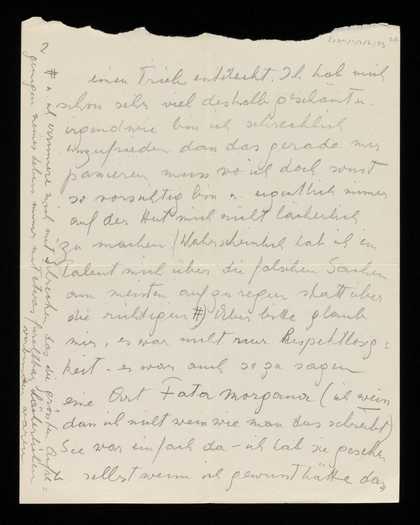 2
einen Trick entdeckt. Ich hab mich
schon sehr viel deshalb geschämt u.
irgendwie bin ich schrecklich
unzufrieden dan das gerade mir
passieren muss wo ich doch sonst
so vorsichtig bin u. eigentlich immer
auf der Hut mich nicht lächerlich
zu machen (Wahrscheinlich hab ich ein
Talent mich über die falschen Sachen
am meisten aufzuregen statt über
die richtigen #) Aber bitte glaub
mir, es war nicht nur Respektlosig=
keit - es war auch so zu sagen
eine Art Fata Morgana (ich weiss
dan ich nicht weiss wie man das schreibt)
See war einfach da - ich hab sie gesehen
selbst wenn ich gewusst hätte das
# u. ich erinnere mich mit Schrecken, das die grössten Aufre=
gungen meines Lebens immer mit etwas furchtbar Lächerlichem
verbunden waren